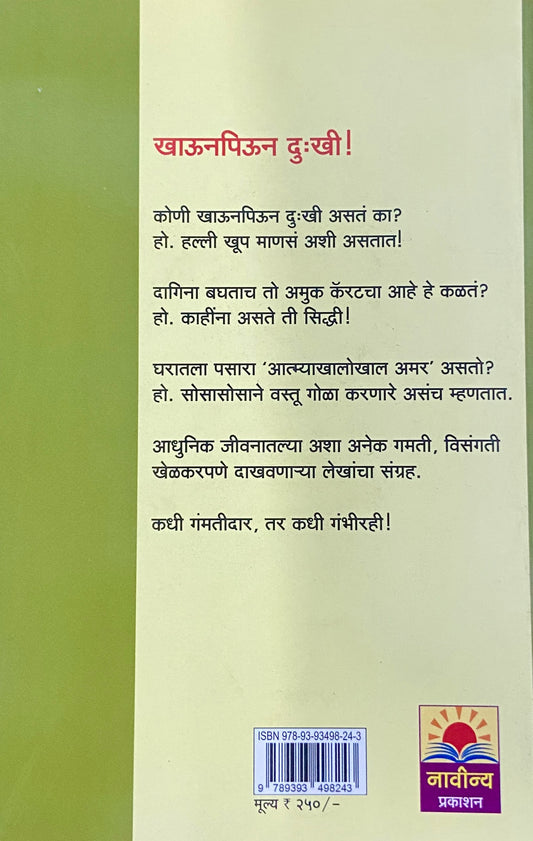 खाऊनपिऊन दुःखी!
कोणी खाऊनपिऊन दुःखी असतं का?
हो. हल्ली खूप माणसं अशी असतात!
दागिना बघताच तो अमुक कॅरटचा आहे हे कळतं?
हो. काहींना असते ती सिद्धी!
घरातला पसारा ‘आत्म्याखालोखाल अमर’ असतो?
हो. सोसासोसाने वस्तू गोळा करणारे असंच म्हणतात.
आधुनिक जीवनातल्या अशा अनेक गमती, विसंगती
खेळकरपणे दाखवणाऱ्या लेखांचा संग्रह.
कधी गंमतीदार, तर कधी गंभीरही!
ISBN 978-93-93498-24-3
9 789393 498243
मूल्य ₹ २५०/-
नावीन्य
प्रकाशन